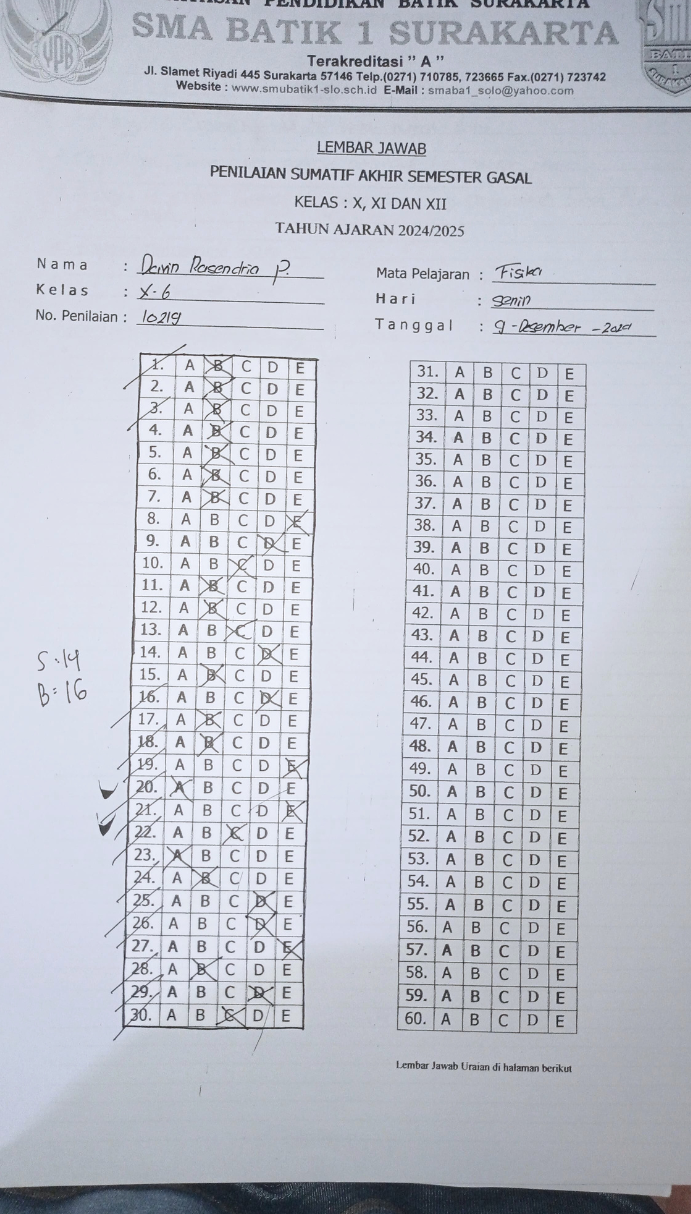 PENDIDIKAN BATIK SURAKARTA
SMA BATIK 1 SURAKARTA
Terakreditasi " A "
Jl. Slamet Riyadi 445 Surakarta 57146 Telp.(0271) 710785, 723665 Fax.(0271) 723742
Website : www.smubatik1-slo.sch.id E-Mail : smaba1_solo@yahoo.com
YPB
LEMBAR JAWAB
PENILAIAN SUMATIF AKHIR SEMESTER GASAL
KELAS : X, XI DAN XII
TAHUN AJARAN 2024/2025
Nama : Davin Rasendria P.
Kelas : X-6
No. Penilaian : 10219
Mata Pelajaran : Fisika
Hari : Senin
Tanggal : 9-Desember-2024
1. A B C D E
2. A B C D E
3. A B C D E
4. A B C D E
5. A B C D E
6. A B C D E
7. A B C D E
8. A B C D E
9. A B C D E
10. A B C D E
11. A B C D E
12. A B C D E
13. A B C D E
14. A B C D E
15. A B C D E
16. A B C D E
17. A B C D E
18. A B C D E
19. A B C D E
20. A B C D E
21. A B C D E
22. A B C D E
23. A B C D E
24. A B C D E
25. A B C D E
26. A B C D E
27. A B C D E
28. A B C D E
29. A B C D E
30. A B C D E
S:14
B=16
31. A B C D E
32. A B C D E
33. A B C D E
34. A B C D E
35. A B C D E
36. A B C D E
37. A B C D E
38. A B C D E
39. A B C D E
40. A B C D E
41. A B C D E
42. A B C D E
43. A B C D E
44. A B C D E
45. A B C D E
46. A B C D E
47. A B C D E
48. A B C D E
49. A B C D E
50. A B C D E
51. A B C D E
52. A B C D E
53. A B C D E
54. A B C D E
55. A B C D E
56. A B C D E
57. A B C D E
58. A B C D E
59. A B C D E
60. A B C D E
Lembar Jawab Uraian di halaman berikut